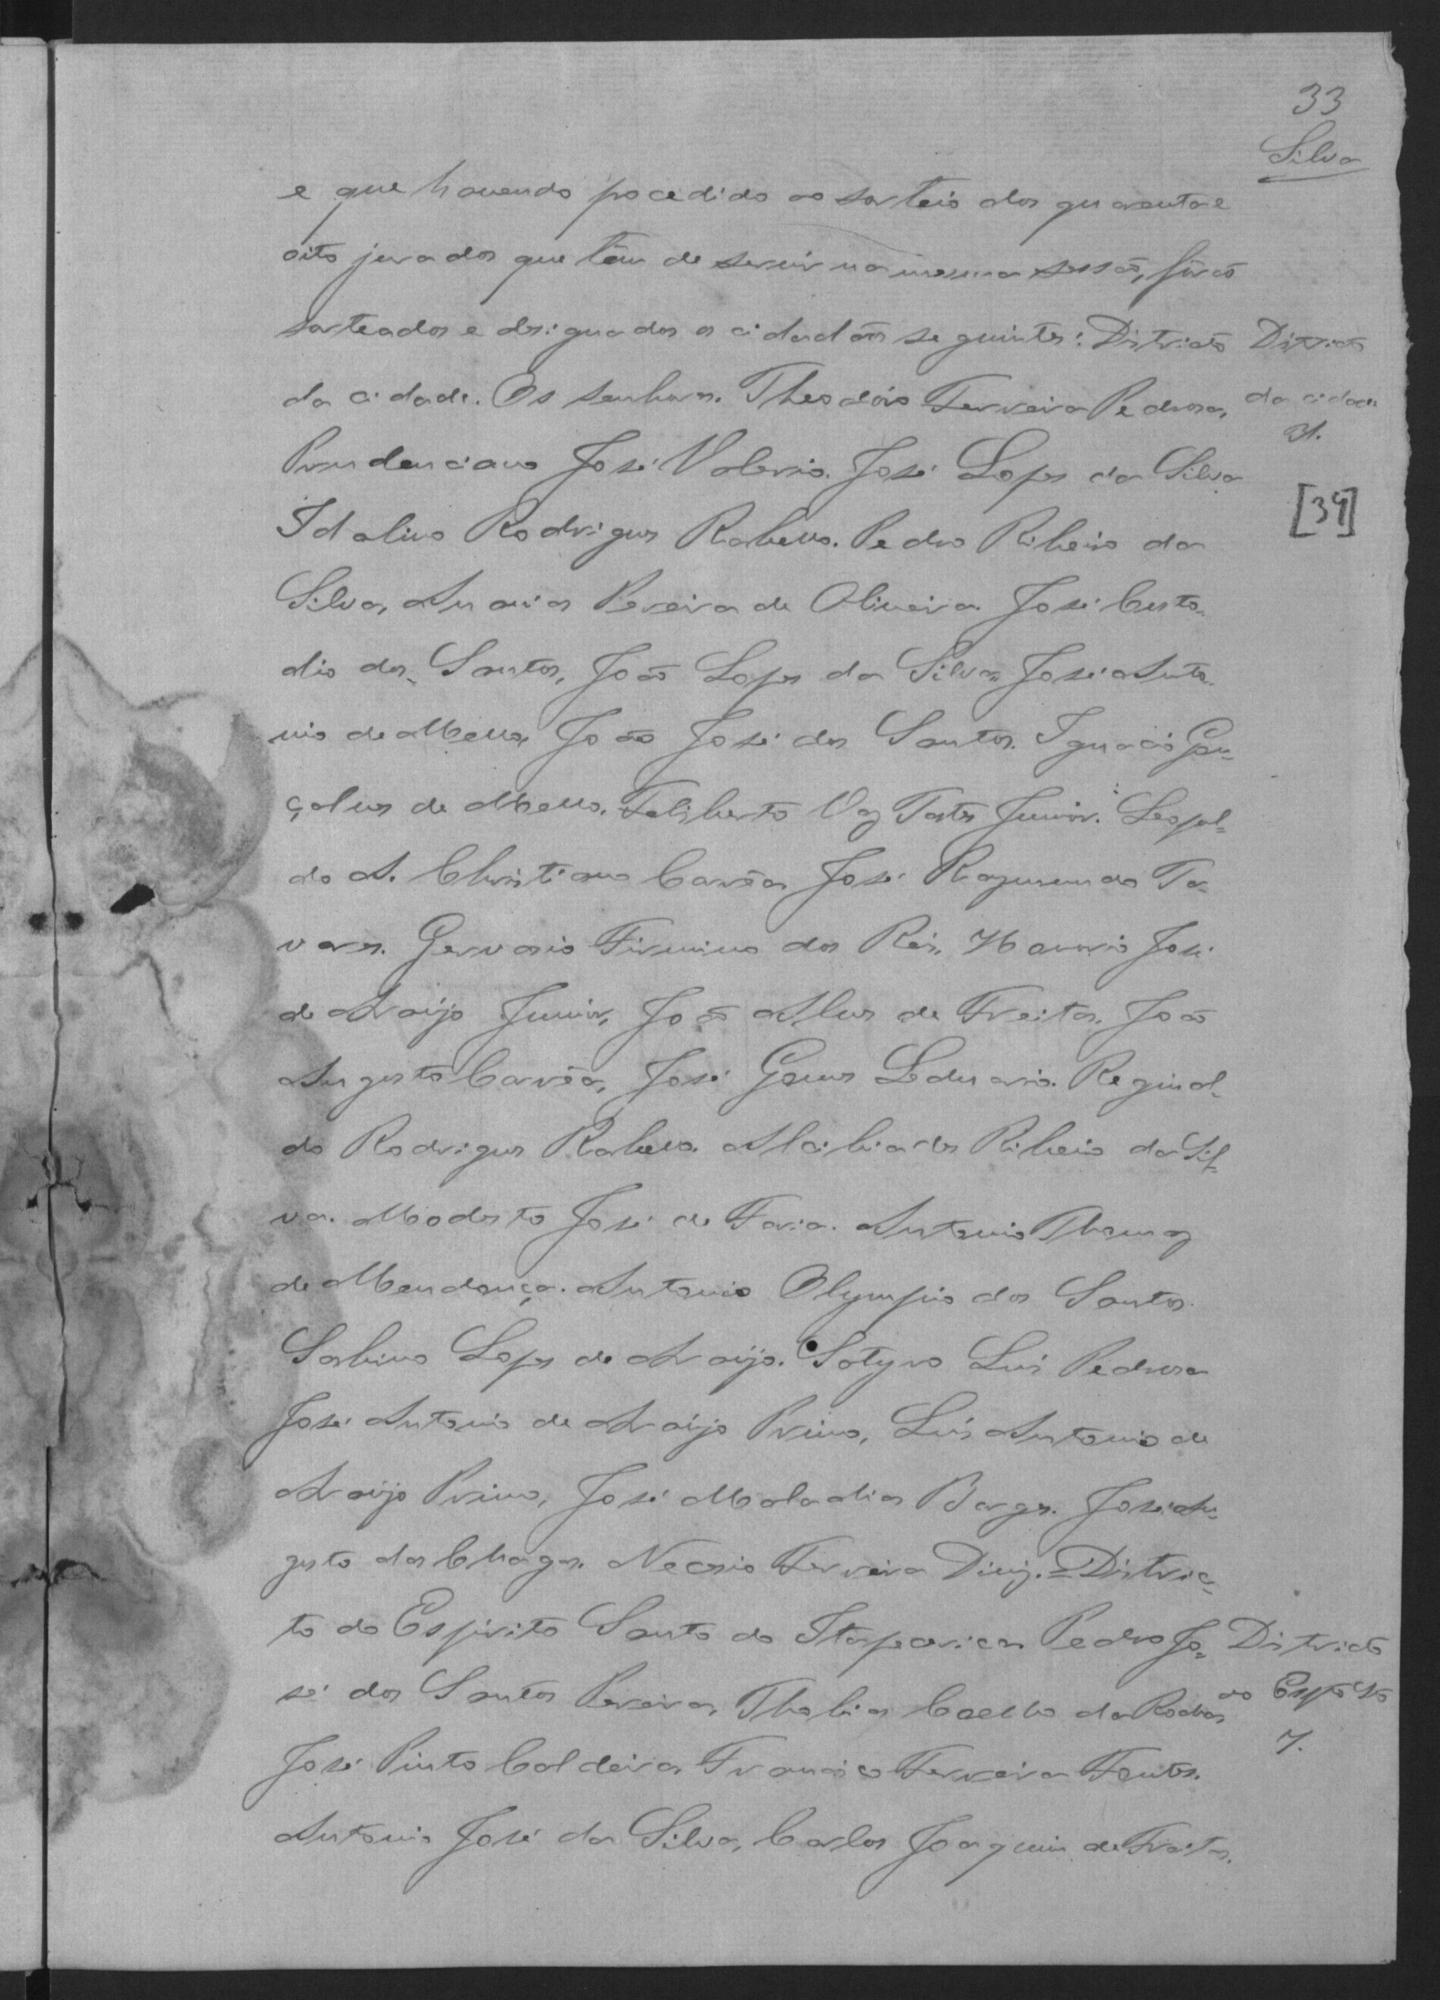 33
Silva
e que havendo pocedido ao sorteio dos quarenta e
oito jurados que têm de servir na mesma sessão, fôrão
sorteados e designados os cidadãos seguintes: Districto
Districto
da cidade. Os senhores. Theodoro Ferreira Pedrosa,
da cidade
31.
Prudenciano José Valerio. José Lopes da Silva
[34]
Idalino Rodrigues Rabello. Pedro Ribeiro da
Silva, Ananias Pereira de Oliveira. José Custo-
dio dos Santos, João Lopes da Silva, José Anto-
nio de Mello, João José dos Santos. Ignacio Gon-
çalves de Mello. Feliberto Vaz Tostes Junior. Leopol-
do A. Christiano Corrêa, José Raymundo Ta-
vares. Gervasio Firmino dos Reis, Honorio José
de Araújo Junior, João Alves de Freitas. João
Augusto Corrêa, José Gomes Leduario. Reginal-
do Rodrigues Rabello. Alcibiades Ribeiro da Sil-
va. Modesto José de Faria. Antonio Thomaz
de Mendonça. Antonio Olympio dos Santos.
Sabino Lopes de Araújo. Satyro Luis Pedrosa
José Antonio de Araújo Primo, Luis Antonio de
Araújo Primo, José Maladias Borges. José Au-
gusto das Chagas. Necesio Ferreira Diniz. = Distric-
to do Espirito Santo do Itapecerica Pedro Jo-
Districto
sé dos Santos Pereira, Thobias Coelho da Rocha,
do Espº Stº
7.
José Pinto Caldeira, Francisco Ferreira Fontes.
Antonio José da Silva, Carlos Joaquim de Freitas.